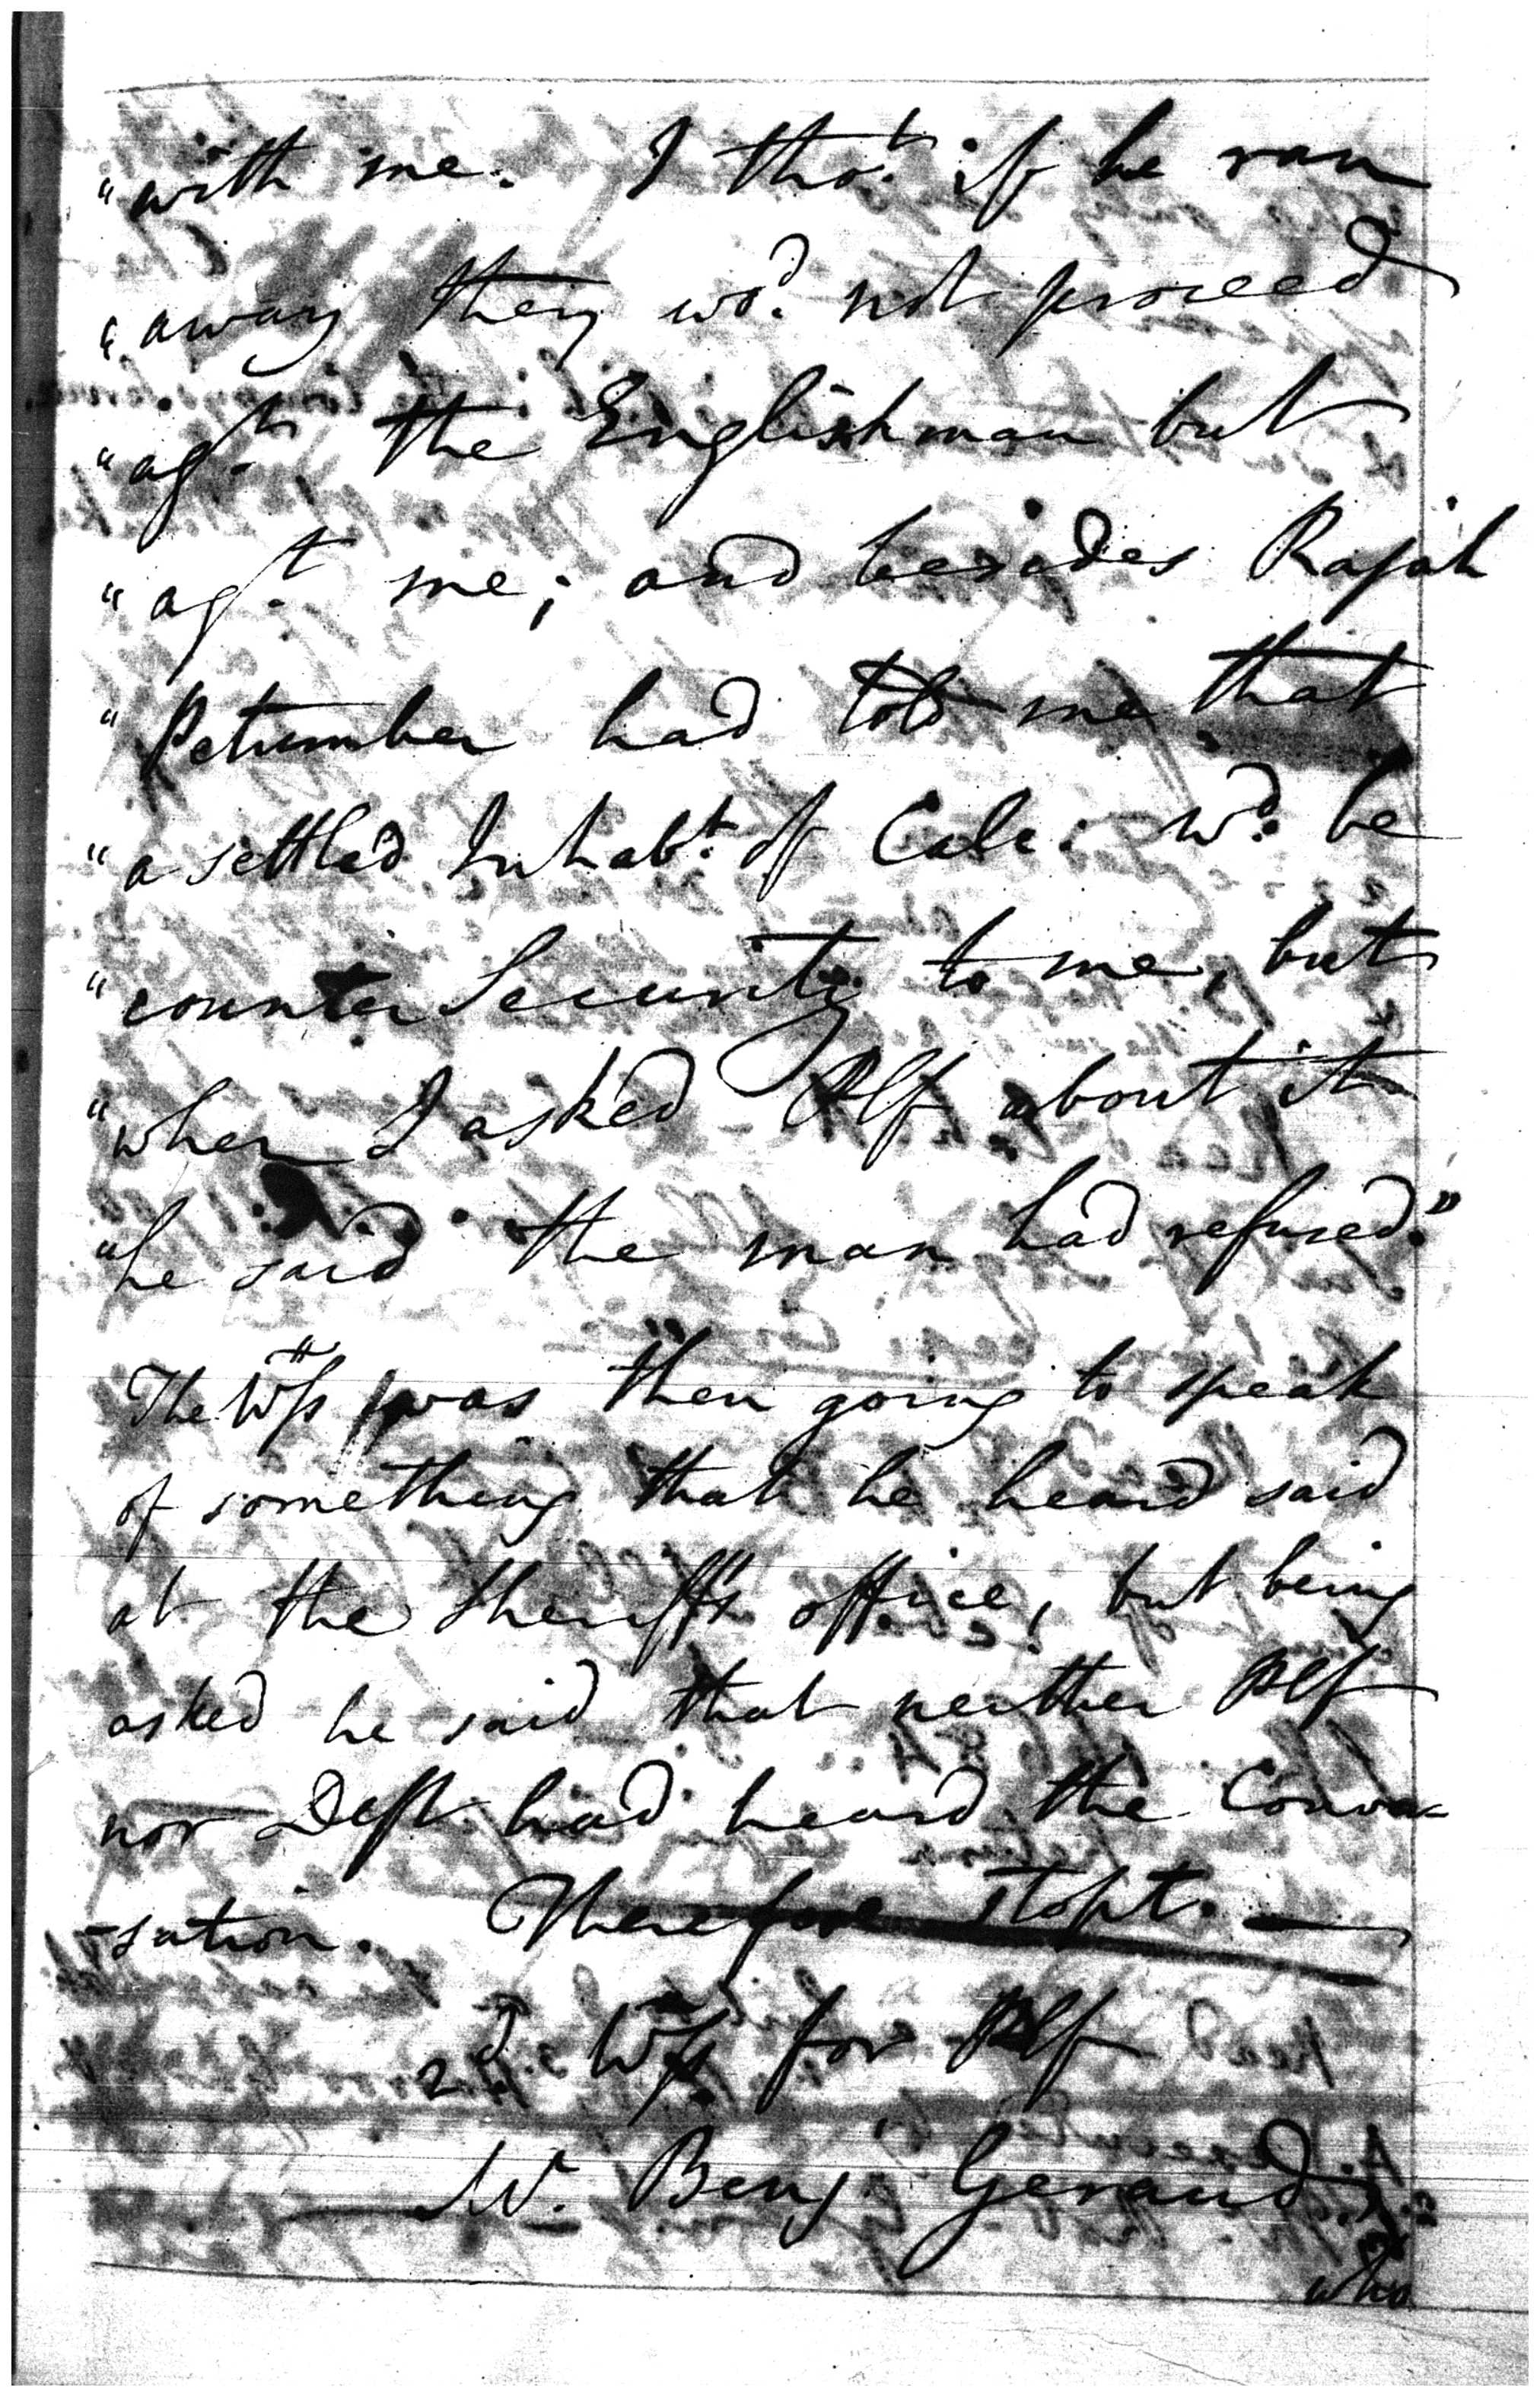 "with me. I tho.t if he ran
"away they wo.d not proceed
"ag.t the Englishman but
"ag.t me; and besides Rajah
"Petumber had told me that
"a settled Inhab.t of Calc: w.d be
"counter Security to me, but
"when I asked Plf about it
"he said the man had refused."
The Wss was then going to speak
of something that he heard said
at the Sheriff's office, but being
asked he said that neither Plf
nor Deft had heard the Conver-
-sation. Therefore stopt. —
2.d Wss for Plf
Benj Geraud
who